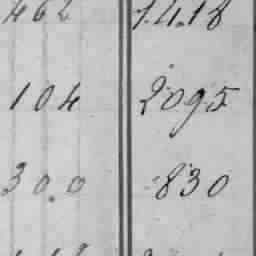 462 1418
104 2095
300 830